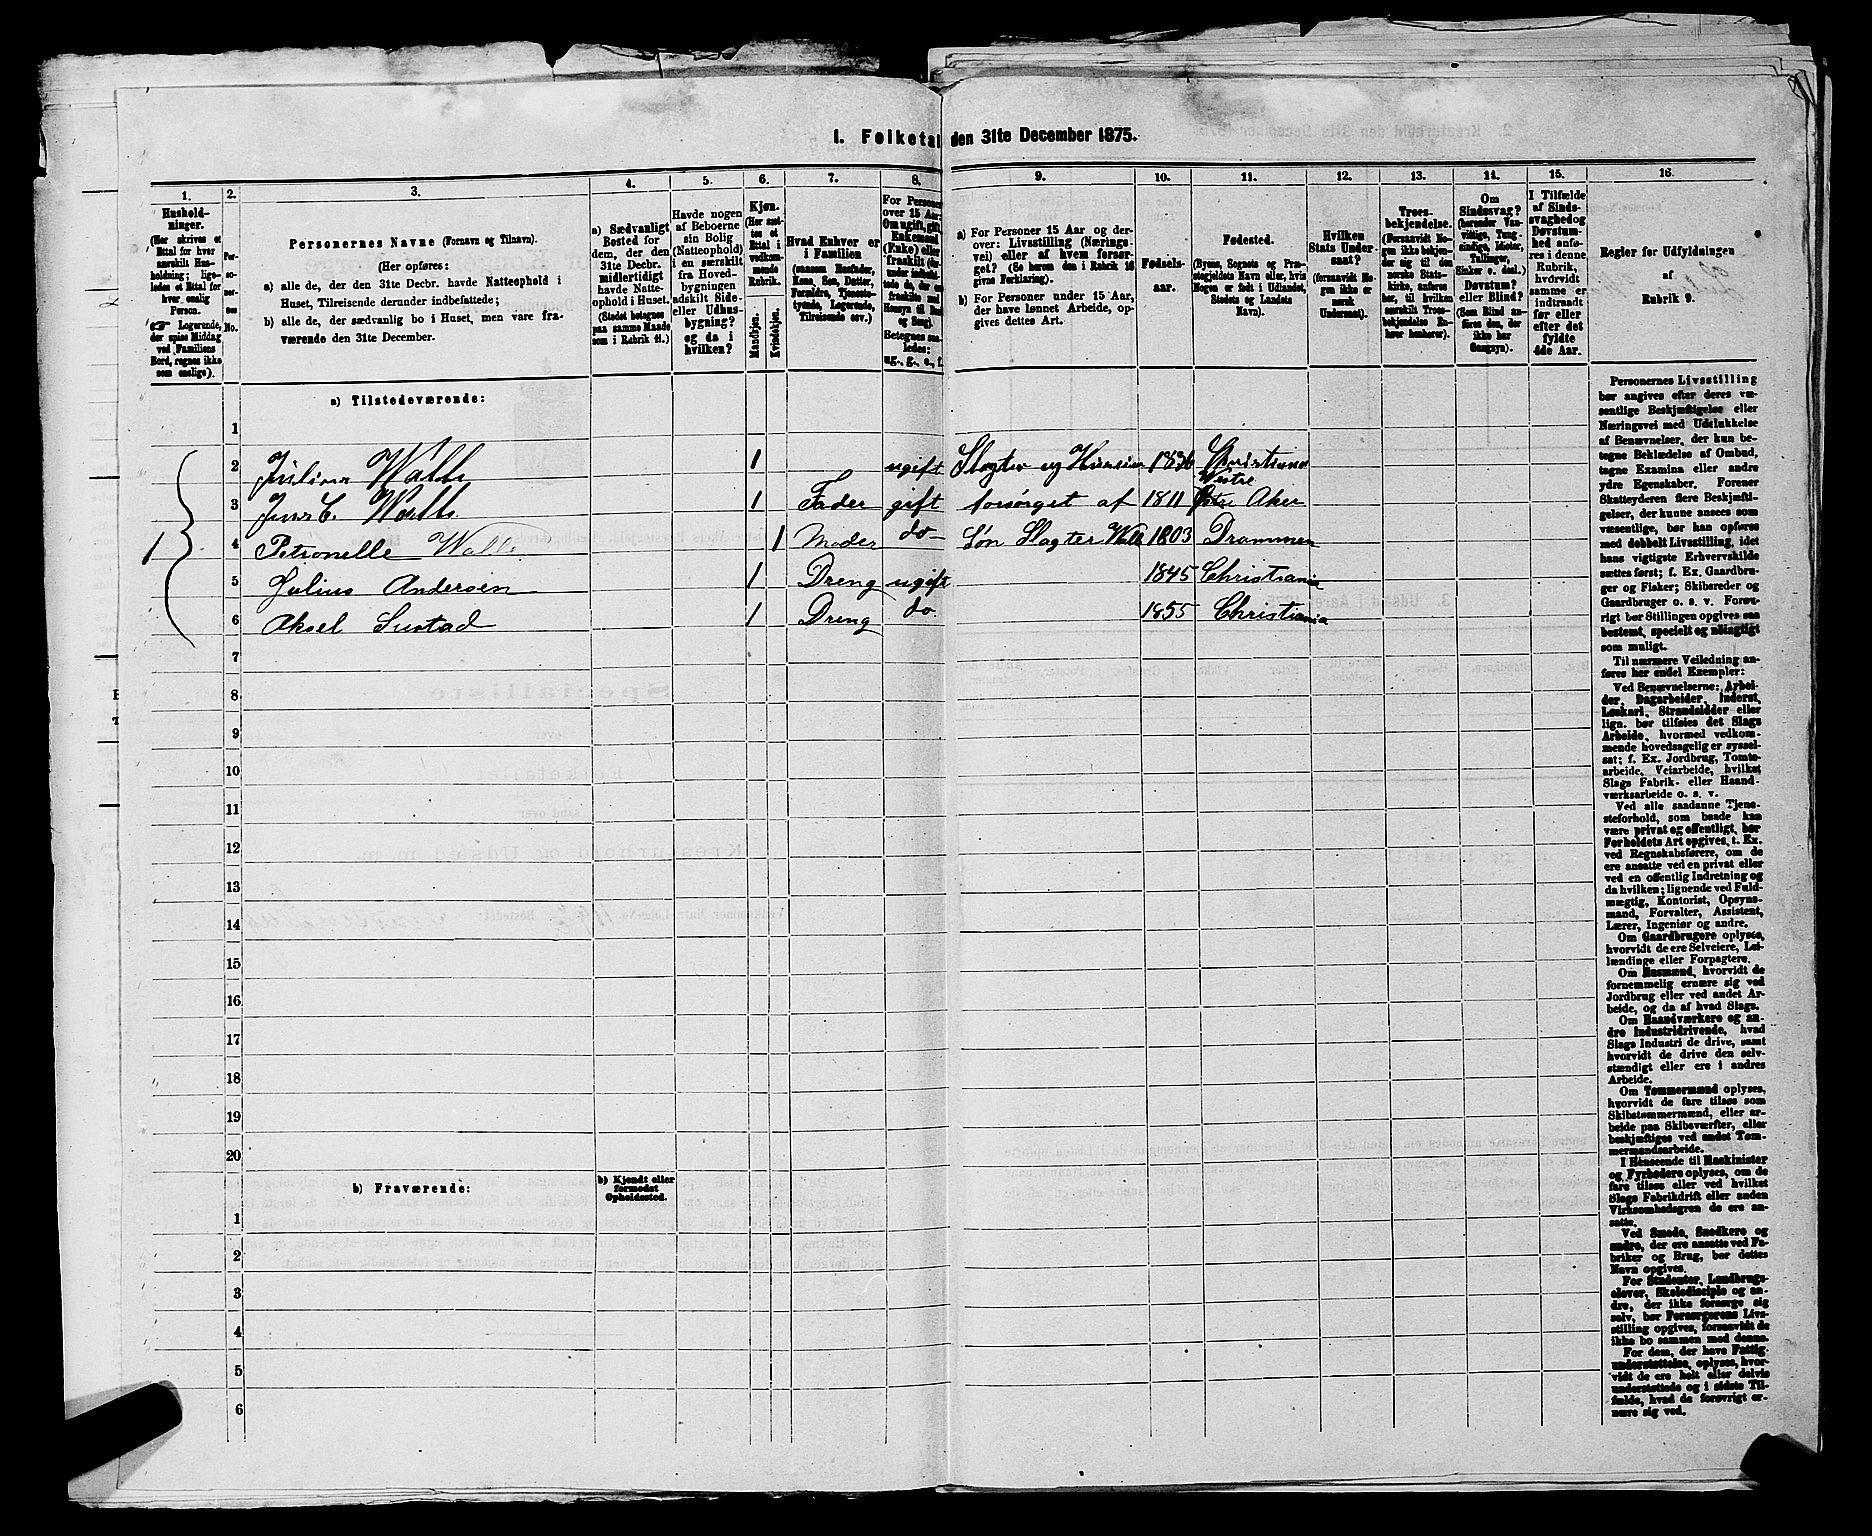 1. Folketal den 31te December 1875.
1. 2. 3. 4. 5. 6. 7. 8. 9. 10. 11. 12. 13. 14. 15. 16.
Hushold-
ninger.
(Her skrives et
Ettal for hver
særskilt Hus-
holdning; lige-
ledes et Ettal for
hver enslig
Person.
Logerende,
der spise Middag
ved Familiens
Bord, regnes ikke
som enslige).
Per-
so-
ner-
nes
No.
Personernes Navne (Fornavn og Tilnavn).
(Her opføres:
a) alle de, der den 31te Decbr. havde Natteophold i
Huset, Tilreisende derunder indbefattede;
b) alle de, der sædvanlig bo i Huset, men vare fra-
værende den 31te December.
a) Sædvanligt
Bosted for
dem, der den
31te Decbr.
midlertidigt
havde Natte-
ophold i Huset.
(Stedet betegnes
paa samme Maade
som i Rubrik 11.)
Havde nogen
af Beboerne
sin Bolig
(Natteophold)
i en særskilt
fra Hoved-
bygningen
adskilt Side-
eller Udhus-
bygning?
og da i
hvilken?
Kjøn.
(Her sæt-
tes et
Ettal i
vedkom-
mende
Rubrik.
Mandkjøn.
Kvindekjøn.
Hvad Enhver er
i Familien
(saasom Husfader,
Kone, Søn, Datter,
Forældre, Tjeneste-
tyende, Logerende,
Tilreisende osv.)
For Personer
over 15 Aar:
Om ugift, gift,
Enkemand
(Enke) eller
fraskilt
Betegnes saa-
ledes:
ug., g., e., f.
a) For Personer 15 Aar og der-
over: Livsstilling (Nærings-
vei) eller af hvem forsør-
get? (Se herom den i Rubrik 16
givne Forklaring).
b) For Personer under 15 Aar,
der have lønnet Arbeide, op-
gives dettes Art.
Fødsels-
aar.
Fødested.
(Byens, Sognets og Præs-
tegjeldets Navn eller, hvis
Nogen er født i Udlandet,
Stedets og Landets
Navn).
Hvilken
Stats Under-
saat?
(forsaavidt No-
gen ikke er
norsk
Undersaat).
Troes-
bekjendelse.
(Forsaavidt No-
gen ikke bekjen-
der sig til den
norske Stats-
kirke, anføres
her, til hvilken
særskilt Troes-
bekjendelse En-
hver henhører).
Om
Sindssvag?
(herunder Van-
vittige, Tung-
sindige, Idioter,
Tullinger,
Sinker o. desl.)
Døvstum?
eller Blind?
(Som Blind an-
føres den, der
ikke har
Gangsyn).
I Tilfælde
af Sinds-
svaghed og
Døvstum-
hed anfø-
res i denne
Rubrik,
hvorvidt
samme er
indtraadt
før eller
efter det
fyldte
4de Aar.
Regler for Udfyldningen
af
Rubrik 9.
a) Tilstedeværende:
1
2 Julius Walle 1 ugift Slagter og Huuseier 1836 Christiania
Vestre
3 Jens C. Walle 1 Fader gift forsørget af 1811 Aker
1 4 Petronelle Walle 1 Moder do Søn Slagter Walle 1803 Drammen
5 Julius Andersen 1 Dreng ugift 1845 Christiania
6 Aksel Sustad 1 Dreng do. 1855 Christiania
7
8
9
10
11
12
13
14
15
16
17
18
19
20
b) Fraværende:
b) Kjendt eller
formodet
Opholdssted.
1
2
3
4
5
6
Personernes Livsstilling
bør angives efter deres væ-
sentlige Beskjæftigelse eller
Næringsvei med Udelukkelse
af Benævnelser, der kun be-
tegne Beklædelse af Ombud,
tagne Examina eller andre
ydre Egenskaber. Forener
Skatteyderen flere Beskjæfti-
gelser, der kunne ansees som
væsentlige, bør han opføres
med dobbelt Livsstilling, idet
hans vigtigste Erhvervskilde
sættes først; f. Ex. Gaardbru-
ger og Fisker; Skibsreder og
Gaardbruger o. s. v. Forøv-
rigt bør Stillingen opgives saa
bestemt, specielt og nøiagtigt
som muligt.
Til nærmere Veiledning an-
føres her endel Exempler:
Ved Benævnelserne: Arbei-
der, Dagarbeider, Inderst,
Løskarl, Strandsidder eller
lign. bør tilføies det Slags
Arbeide, hvormed vedkom-
mende hovedsagelig er syssel-
sat; f. Ex. Jordbrug, Tomte-
arbeide, Veiarbeide, hvilket
Slags Fabrik- eller Haand-
værksarbeide o. s. v.
Ved alle saadanne Tjene-
steforhold, som baade kan
være privat og offentligt, bør
Forholdets Art opgives, t. Ex.
ved Regnskabsførere, om de
ere ansatte ved en privat eller
ved en offentlig Indretning og
da hvilken; lignende ved Fuld-
mægtig, Kontorist, Opsyns-
mand, Forvalter, Assistent,
Lærer, Ingeniør og andre.
Om Gaardbrugere oplyses,
hvorvidt de ere Selveiere, Lei-
lændinge eller Forpagtere.
Om Husmænd, hvorvidt de
fornemmelig ernære sig ved
Jordbrug eller ved andet Ar-
beide, og da af hvad Slags.
Om Haandværkere og an-
dre Industridrivende, hvad
Slags Industri de drive, samt
hvorvidt de drive den selv-
stændigt eller ere i andres
Arbeide.
Om Tømmermænd oplyses,
hvorvidt de fare tilsøs som
Skibstømmermænd, eller ar-
beide paa Skibsværfter, eller
beskjæftiges ved andet Tøm-
mermandsarbeide.
I Henseende til Maskinister
og Fyrbødere oplyses, om de
fare tilsøs eller ved hvilket
Slags Fabrikdrift eller anden
Virksomhedsgren de ere an-
satte.
Ved Smede, Snedkere og
andre, der ere ansatte ved Fa-
briker og Brug, bør dettes
Navn opgives.
For Studenter, Landbrugs-
elever, Skoledisciple og an-
dre, der ikke forsørge sig
selv, bør Forsørgerens Livs-
stilling opgives, forsaavidt de
ikke bo sammen med denne.
For dem, der have Fattig-
understøttelse, oplyses, hvor-
vidt de ere helt eller delvis
understøttede og i sidste Til-
fælde, hvad de forøvrigt er-
nære sig ved.